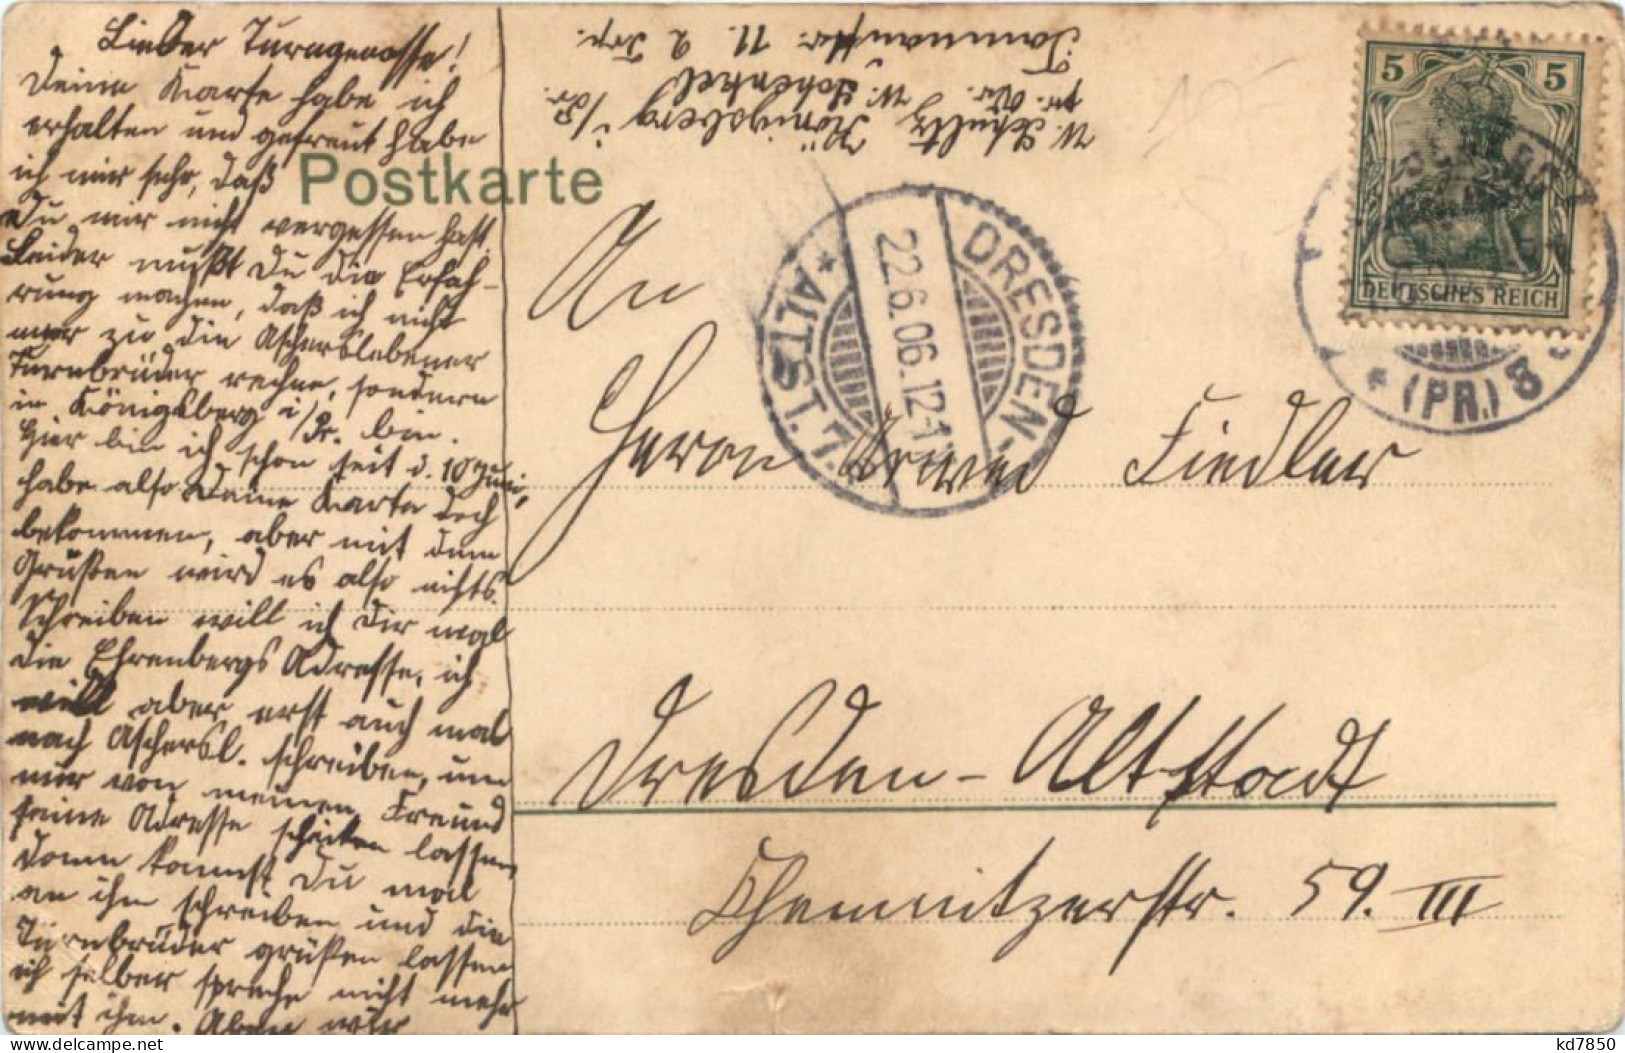 Lieber Turngenosse!
Deine Karte habe ich
erhalten und gefreut habe
ich mir sehr, daß
Du mir nicht vergessen hast.
Leider mußt Du die Erfah-
rung machen, daß ich nicht
mehr zu die Ascherslebener
Turnbrüder rechne, sondern
in Königsberg i/Pr. bin.
Hier bin ich schon seit d. 10 Juni,
habe also Deine Karte doch
bekommen, aber mit dem
Grüßen wird es also nichts.
Schreiben will ich Dir mal
die Ehrenbergs Adresse, ich
will aber erst auch mal
nach Aschersl. schreiben, um
mir von meinen Freund
seine Adresse schicken lassen,
dann kannst Du mal
an ihm schreiben und die
Turnbrüder grüßen lassen
ich selber spreche nicht mehr
mit ihm. Aber wir
Postkarte
W. Schultz Königsberg i/Pr.
pr. Adr. W. Schenkel
11. 2 Trp.
An
Herrn Fiedler
Dresden-Altstadt
Chemnitzerstr. 59. III
DRESDEN-
22.6.06.12-1
* ALTST. 7.
5 5
DEUTSCHES REICH
* (PR.) 5
kd7850